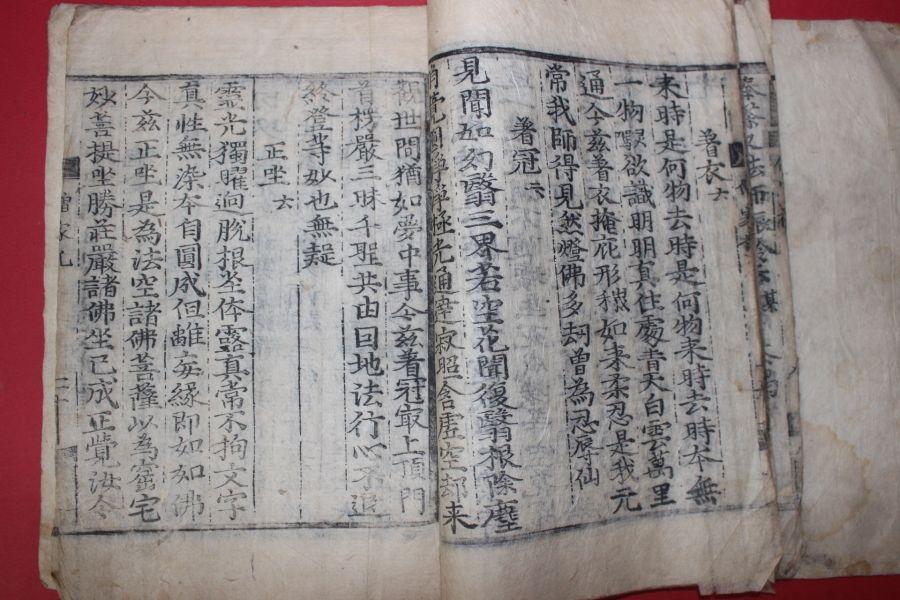 著衣六
来時是何物去時是何物来時去時本無
一物嘿欲識明明真住處靑天白雲萬里
通今茲著衣掩庇形穢如来柔忍是我元
常我師得見然燈佛多刼曽為忍辱仙
著冠六
見聞如幻翳三界若空花聞復翳根除塵
覺圓淨淨極光通達寂照含虛空却来
觀世間猶如夢中事今茲著冠最上頂門
首楞嚴三昧千聖共由因地法行心不退
終登等妙也無疑
正坐六
靈光獨曜逈脫根塵体露真常不拘文字
真性無染本自圓成但離妄緣即如如佛
今茲正坐是為法空諸佛菩薩以為窟宅
妙菩提坐勝莊嚴諸佛坐已成正覺汝今